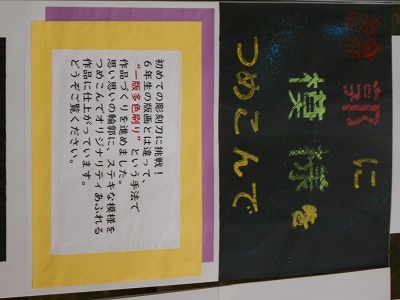 輪郭に
模様を
つめこんで
初めての彫刻刀に挑戦！
６年生の版画とは違って、
“一版多色刷り”という手法で
作品づくりを進めました。
思い思いの輪郭に、ステキな模様を
つめこんでオリジナリティあふれる
作品に仕上がっています。
どうぞご覧ください。